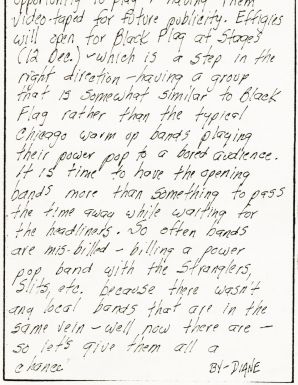 opportunity to play & having them
video-taped for future publicity. Effigies
will open for Black Flag at Stages
(12 Dec.) - which is a step in the
right direction - having a group
that is somewhat similar to Black
Flag rather than the typical
Chicago warm up bands playing
their power pop to a bored audience.
It is time to have the opening
bands more than something to pass
the time away while waiting for
the headliners. So often bands
are mis-billed - billing a power
pop band with the Stranglers,
Slits, etc. because there wasn't
any local bands that are in the
same vein - well now there are -
so let's give them all a
chance! BY-DIANE